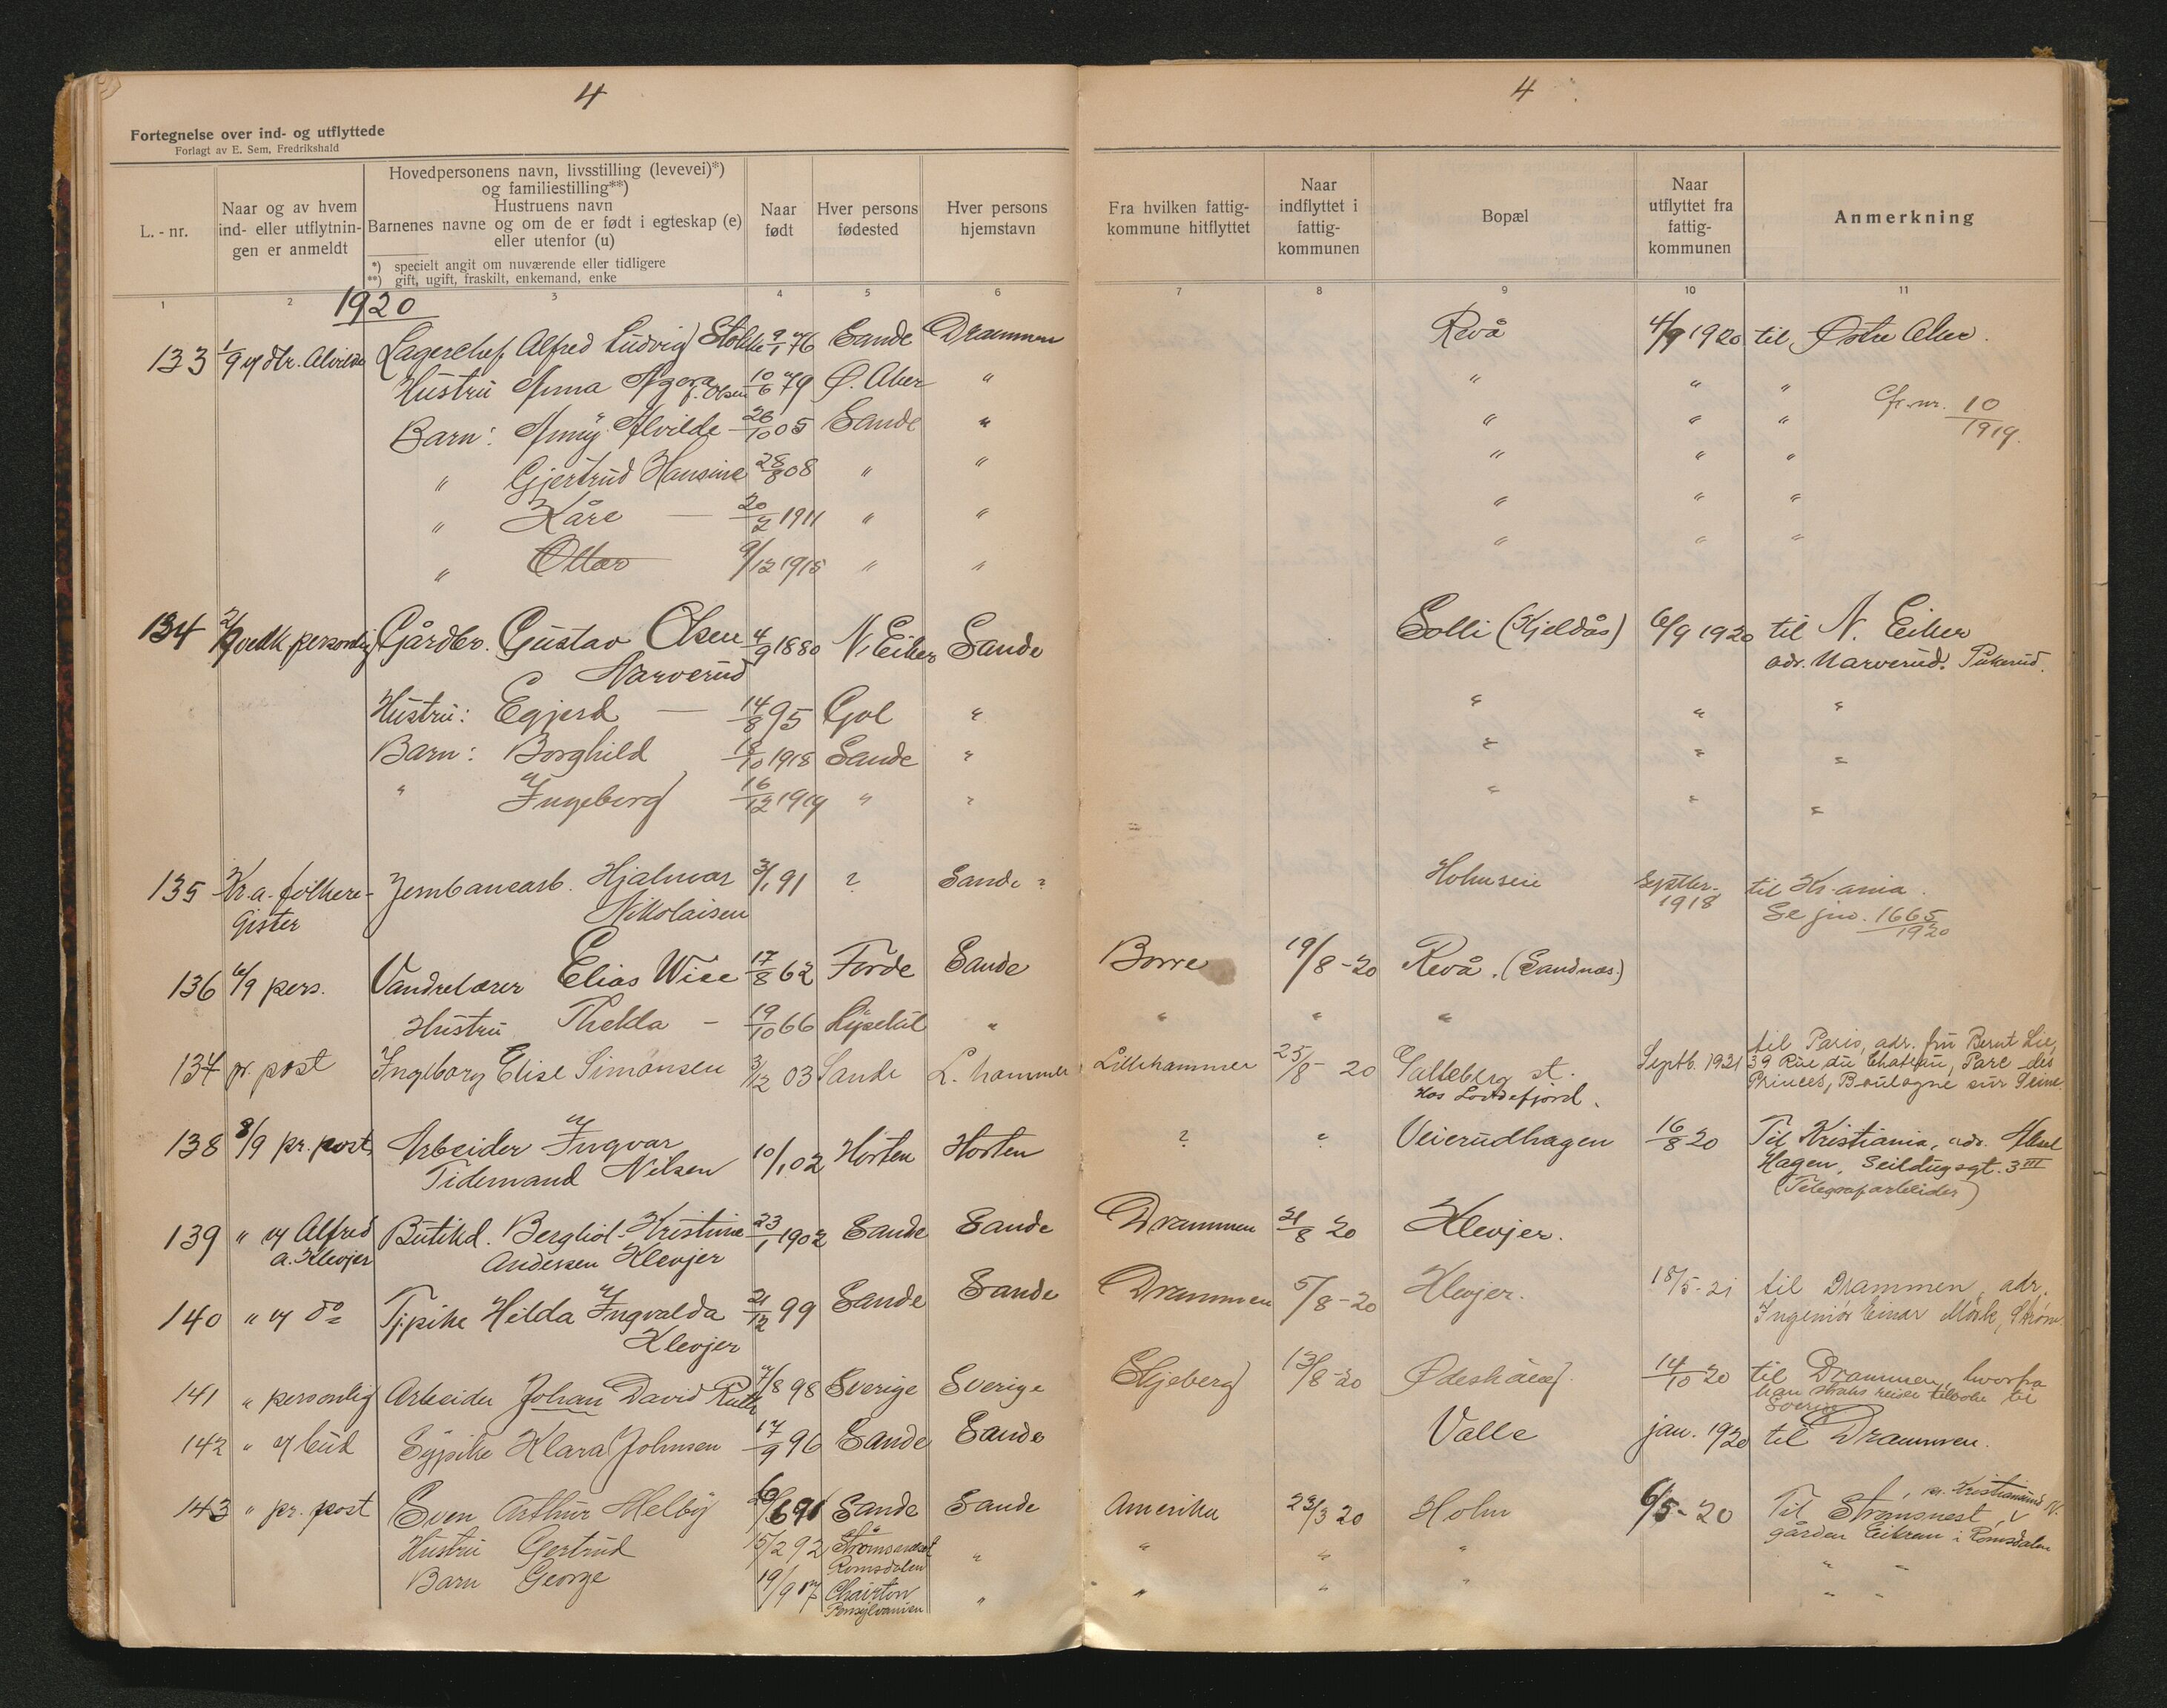 4
Fortegnelse over ind- og utflyttede
Forlagt av E. Sem, Fredrikshald
L. - nr.
Naar og av hvem
ind- eller utflytnin-
gen er anmeldt
Hovedpersonens navn, livsstilling (levevei)*)
og familiestilling**)
Hustruens navn
Barnenes navne og om de er født i egteskap (e)
eller utenfor (u)
*) specielt angit om nuværende eller tidligere
**) gift, ugift, fraskilt, enkemand, enke
Naar
født
Hver persons
fødested
Hver persons
hjemstavn
1 2 3 4 5 6
1920
133 1/9 v/ dtr. Alvilde Lagerchef Alfred Ludvig 9/1 76 Sande Drammen
Hustru Anna f. Olsen 10/6 79 Ø. Aker "
Barn: Anny Alvilde - 26/10 05 Sande "
" Gjertrud Hansine 28/8 08 " "
" Kåre — 20/2 1911 " "
" Ottar 9/12 1915 " "
134 personlig Gårdbr. Gustav Olsen 4/9 1880 N. Eiker Sande
Narverud
Hustru: Egjerd — 14/8 95 Gol "
Barn: Borghild 18/10 1918 Sande "
" Ingeborg 16/12 1919 " "
135 Kr.a. folkere- Jernbanearb. Hjalmar 3/1 91 ? Sande ?
gister Nikolaisen
136 4/9 pers. Vandrelærer Elias Wiee 17/8 62 Førde Sande
Hustru Thelda - 19/10 66 "
137 pr. post Ingeborg Elise Simonsen 3/12 03 Sande L. hammer
138 8/9 pr. post Arbeider Ingvar
Tidemand Nilsen 10/1 02 Horten Horten
139 " v/ Alfred Butikd. Bergliot Kristine 23/1 1902 Sande Sande
A. Klevjer Andersen Klevjer
140 " v/ do Tj.pike Hilda Ingvalda 21/12 99 Sande Sande
Klevjer
141 " personlig Arbeider Johan David 7/8 98 Sverige Sverige
142 " v/ bud Sypike Klara Johnsen 17/9 96 Sande Sande
143 " pr. post Sven Arthur Melby Sande Sande
Hustru Gertrud 15/2 92 "
Romsdalen
Barn George 19/9 17 Chairton "
Pensylvanien
4
Fra hvilken fattig-
kommune hitflyttet
Naar
indflyttet i
fattig-
kommunen
Bopæl
Naar
utflyttet fra
fattig-
kommunen
Anmerkning
7 8 9 10 11
Revå 4/9 1920 til Østre Aker.
" " "
Cfr. nr. 10/1919.
" " "
" " "
" " "
" " "
Solli (Kjeldås) 6/9 1920 til N. Eiker
adr. Narverud.
" " "
" " "
" " "
Holmseie Septbr. 1918 til Kr.ania.
Se jno. 1665/1920
Borre 19/8-20 Revå. (Sandnæs.)
" " "
Lillehammer 25/8-20 Galleberg st. Septb. 1921 til Paris, adr. fru Bernt Lie,
hos Lovdefjord.
39 Rue du Chateau, Parc des
Princes, Boulogne sur Seine
? " Veierudhagen 16/8 20 Til Kristiania, adr. Aksel
Hagen, Seildugsgt. 3 III
(Telegrafarbeider)
Drammen 21/8 20 Klevjer.
Drammen 5/8-20 Klevjer. 18/5-21 til Drammen, adr.
Ingeniør Einar Mørk,
Skjeberg 13/8-20 14/10 20 til Drammen, hvorfra
han straks reiste tilbake til
Sverige
Valle jan. 1920 til Drammen.
Amerika 23/3 20 Holm 6/5-20 Til Strømsnest, pr. Kristiansund N.
gården Eikrem i Romsdalen
" " " " "
" " " " "